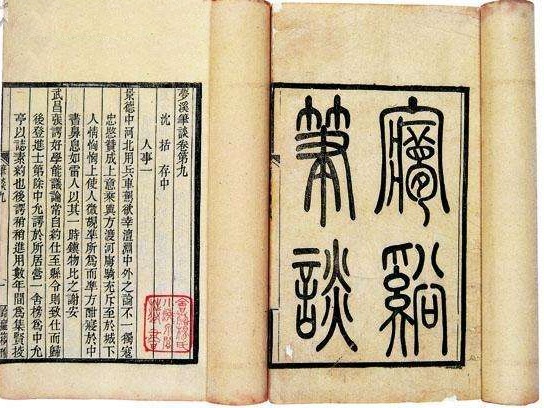 㝱谿
筆談
夢溪筆談卷第九
沈括存中
人事一
景德中河北用兵車駕欲幸澶淵中外之論不一獨寇
忠愍贊成上意乘輿方渡河虜騎充斥至於城下
人情恟恟上使人微覘準所為而準方酣寢於中
書鼻息如雷人以其一時鎮物比之謝安
武昌張諤好學能議論常自約仕至縣令則致仕而歸
後登進士第除中允諤於所居營一舍榜為中允
亭以誌素約也後諤稍稍進用數年間為集賢校
筆談九